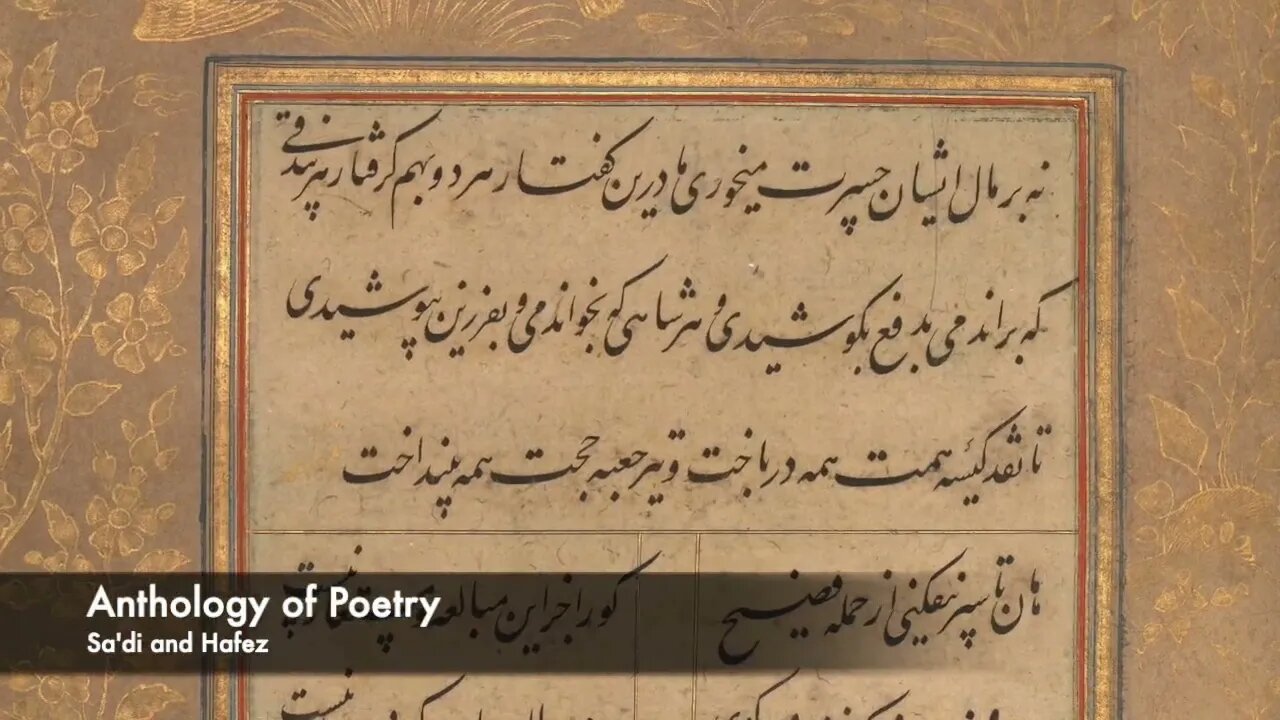 نه بر مال ایشان حسرت میخوری ما درین کفتار هر دو بهم کرفتار هر بیدقی
که براندمی بدفع بکوشیدی و هر شاهی که بخواندمی و بفرزین بپوشیدی
تا نقد کیسه همت همه درباخت و تیر جعبه حجت همه بینداخت
هان تا سپر نیفکنی از حمله فصیح کورا جز این مبالغه
Anthology of Poetry
Sa'di and Hafez